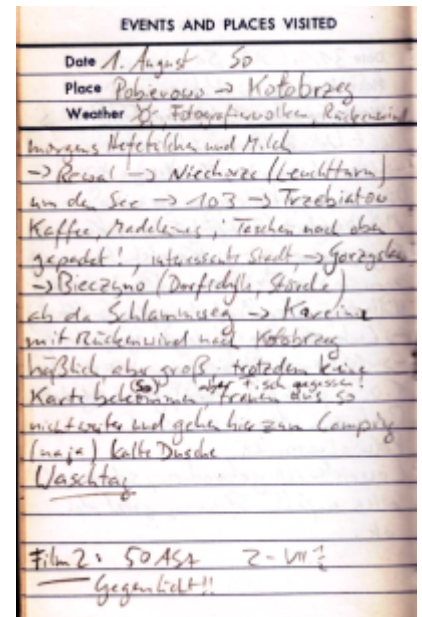 EVENTS AND PLACES VISITED
Date 1. August So
Place Pobierowo -> Kołobrzeg
Weather Fotografierwolken, Rückenwind
morgens Hefeteilchen und Milch
-> Rewal -> Niechorze (Leuchtturm)
um den See -> 103 -> Trzebiatów
Kaffee, Madeleines, Taschen nach oben
gepackt!, interessante Stadt, -> Gorzysław
-> Bieczyno (Dorfidylle, Störche)
ab da Schlammweg -> Karcino
mit Rückenwind nach Kołobrzeg
häßlich aber groß, trotzdem keine
(So) aber Fisch gegessen!
Karte bekommen trauen uns so
nicht weiter und gehen hier zum Camping
(naja) kalte Dusche
Waschtag
Film 2: 50 ASA 2-VII ½
Gegenlicht!!